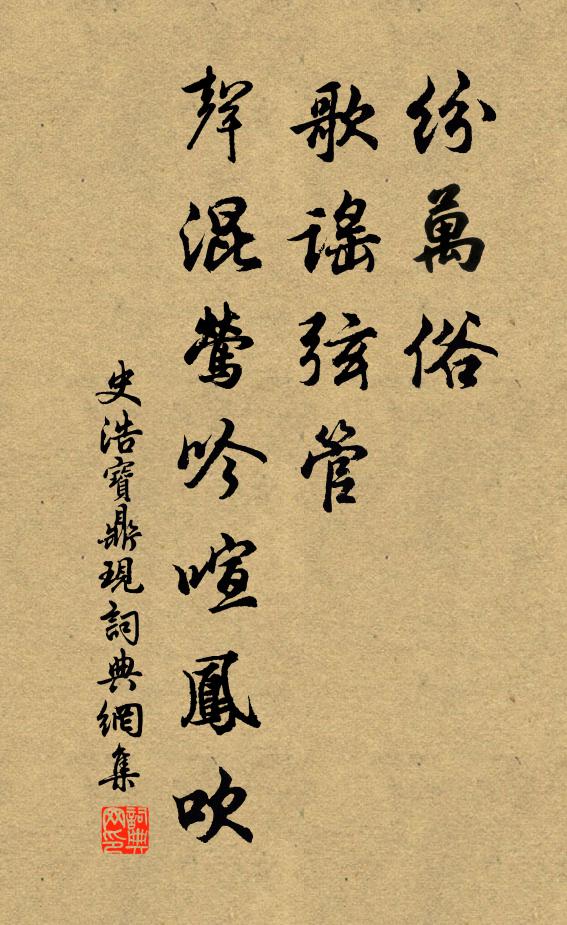 紛萬俗
歌謡弦管
聲混鶯吟喧鳳吹
史浩寶鼎現詞典網集
詞典
网印